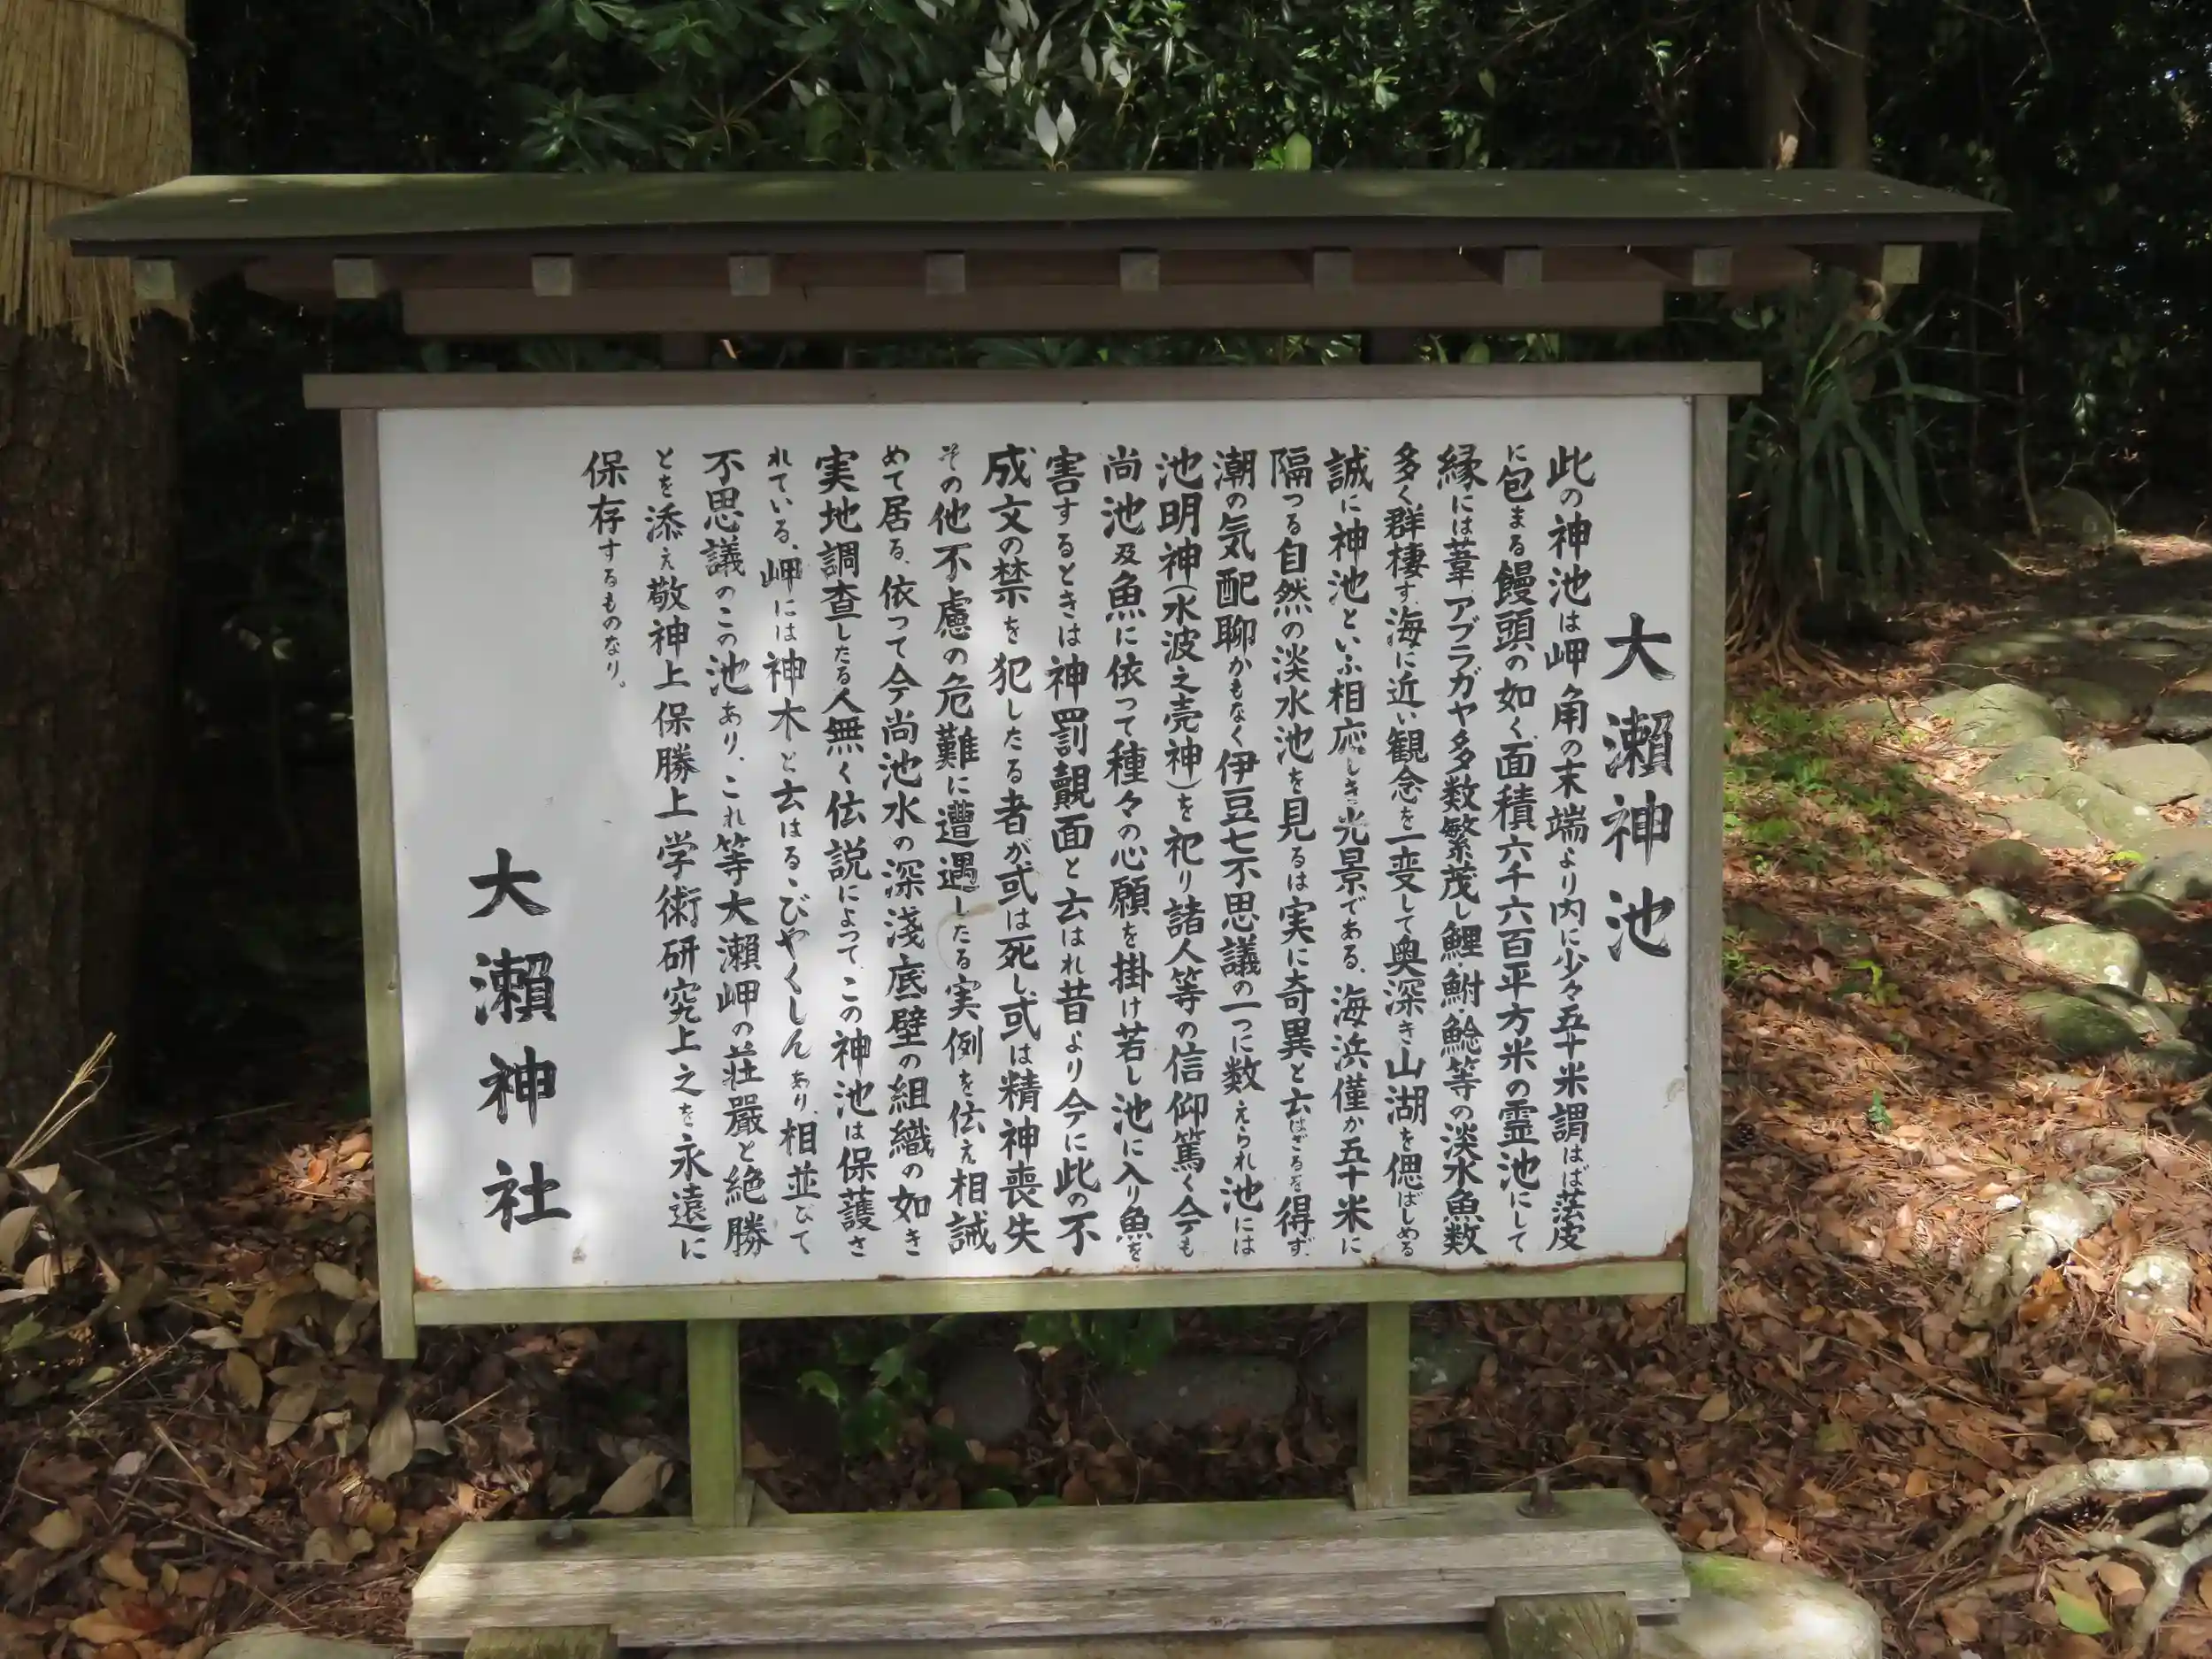 大瀬神池
此の神池は岬角の末端より内に少々五十米謂はば薄皮
に包まる饅頭の如く面積六千六百平方米の霊池にして
縁には葦、アブラガヤ多数繁茂し鯉・鮒・鯰等の淡水魚数
多く群棲す、海に近い観念を一変して奥深き山湖を偲ばしめる
誠に神池といふ相応しき光景である、海浜僅か五十米に
隔つる自然の淡水池を見るは実に奇異と云はざるを得ず、
潮の気配聊かもなく伊豆七不思議の一つに数えられ池には
池明神(水波之売神)を祀り諸人等の信仰篤く今も
尚池及魚に依って種々の心願を掛け若し池に入り魚を
害するときは神罰覿面と云はれ昔より今に此の不
成文の禁を犯したる者が或は死し或は精神喪失
その他不慮の危難に遭遇したる実例を伝え相誡
めて居る、依って今尚池水の深淺底壁の組織の如き
実地調査したる人無く伝説によって、この神池は保護さ
れている、岬には神木と云はるゝびやくしんあり、相並びて
不思議のこの池あり、これ等大瀬岬の荘嚴と絶勝
とを添え敬神上保勝上学術研究上之を永遠に
保存するものなり。
大瀬神社